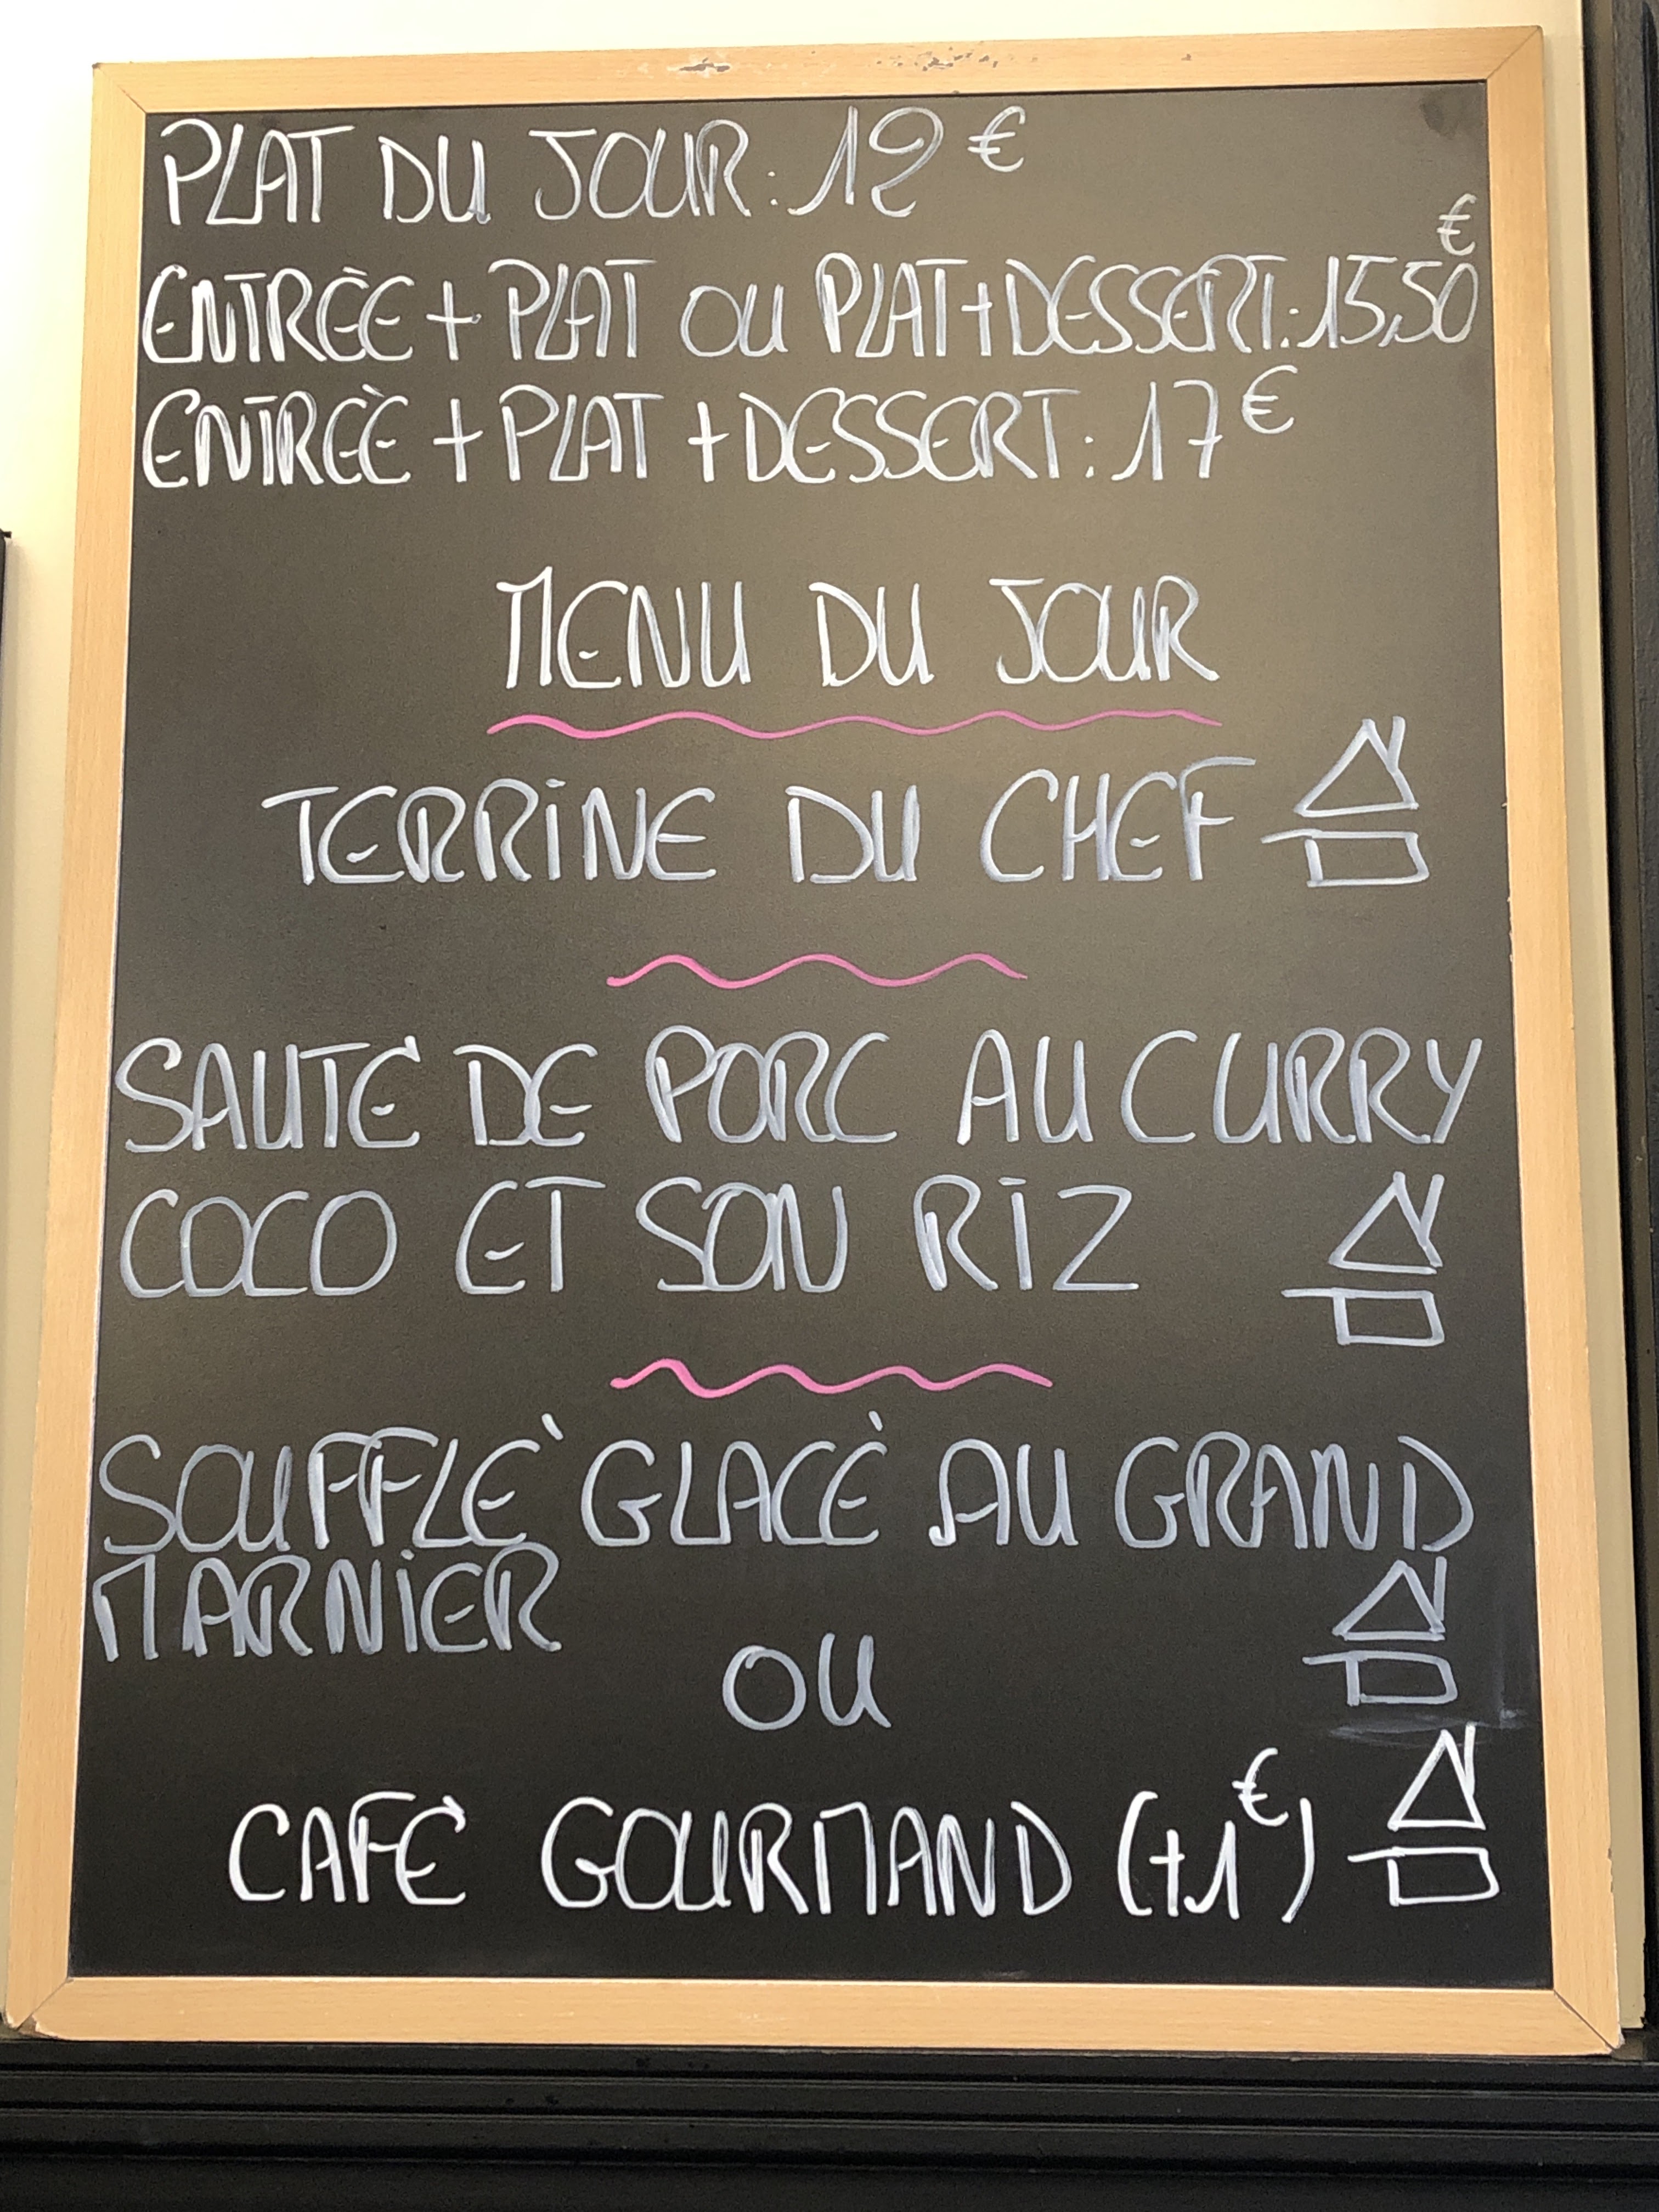 PLAT DU JOUR : 12 €
ENTRÈE + PLAT OU PLAT+DESSERT : 15,50 €
ENTRÈE + PLAT + DESSERT : 17 €
MENU DU JOUR
TERRINE DU CHEF
SAUTE DE PORC AU CURRY
COCO ET SON RIZ
SOUFFLÈ GLACÈ AU GRAND
MARNIER
OU
CAFE GOURMAND (+1€)